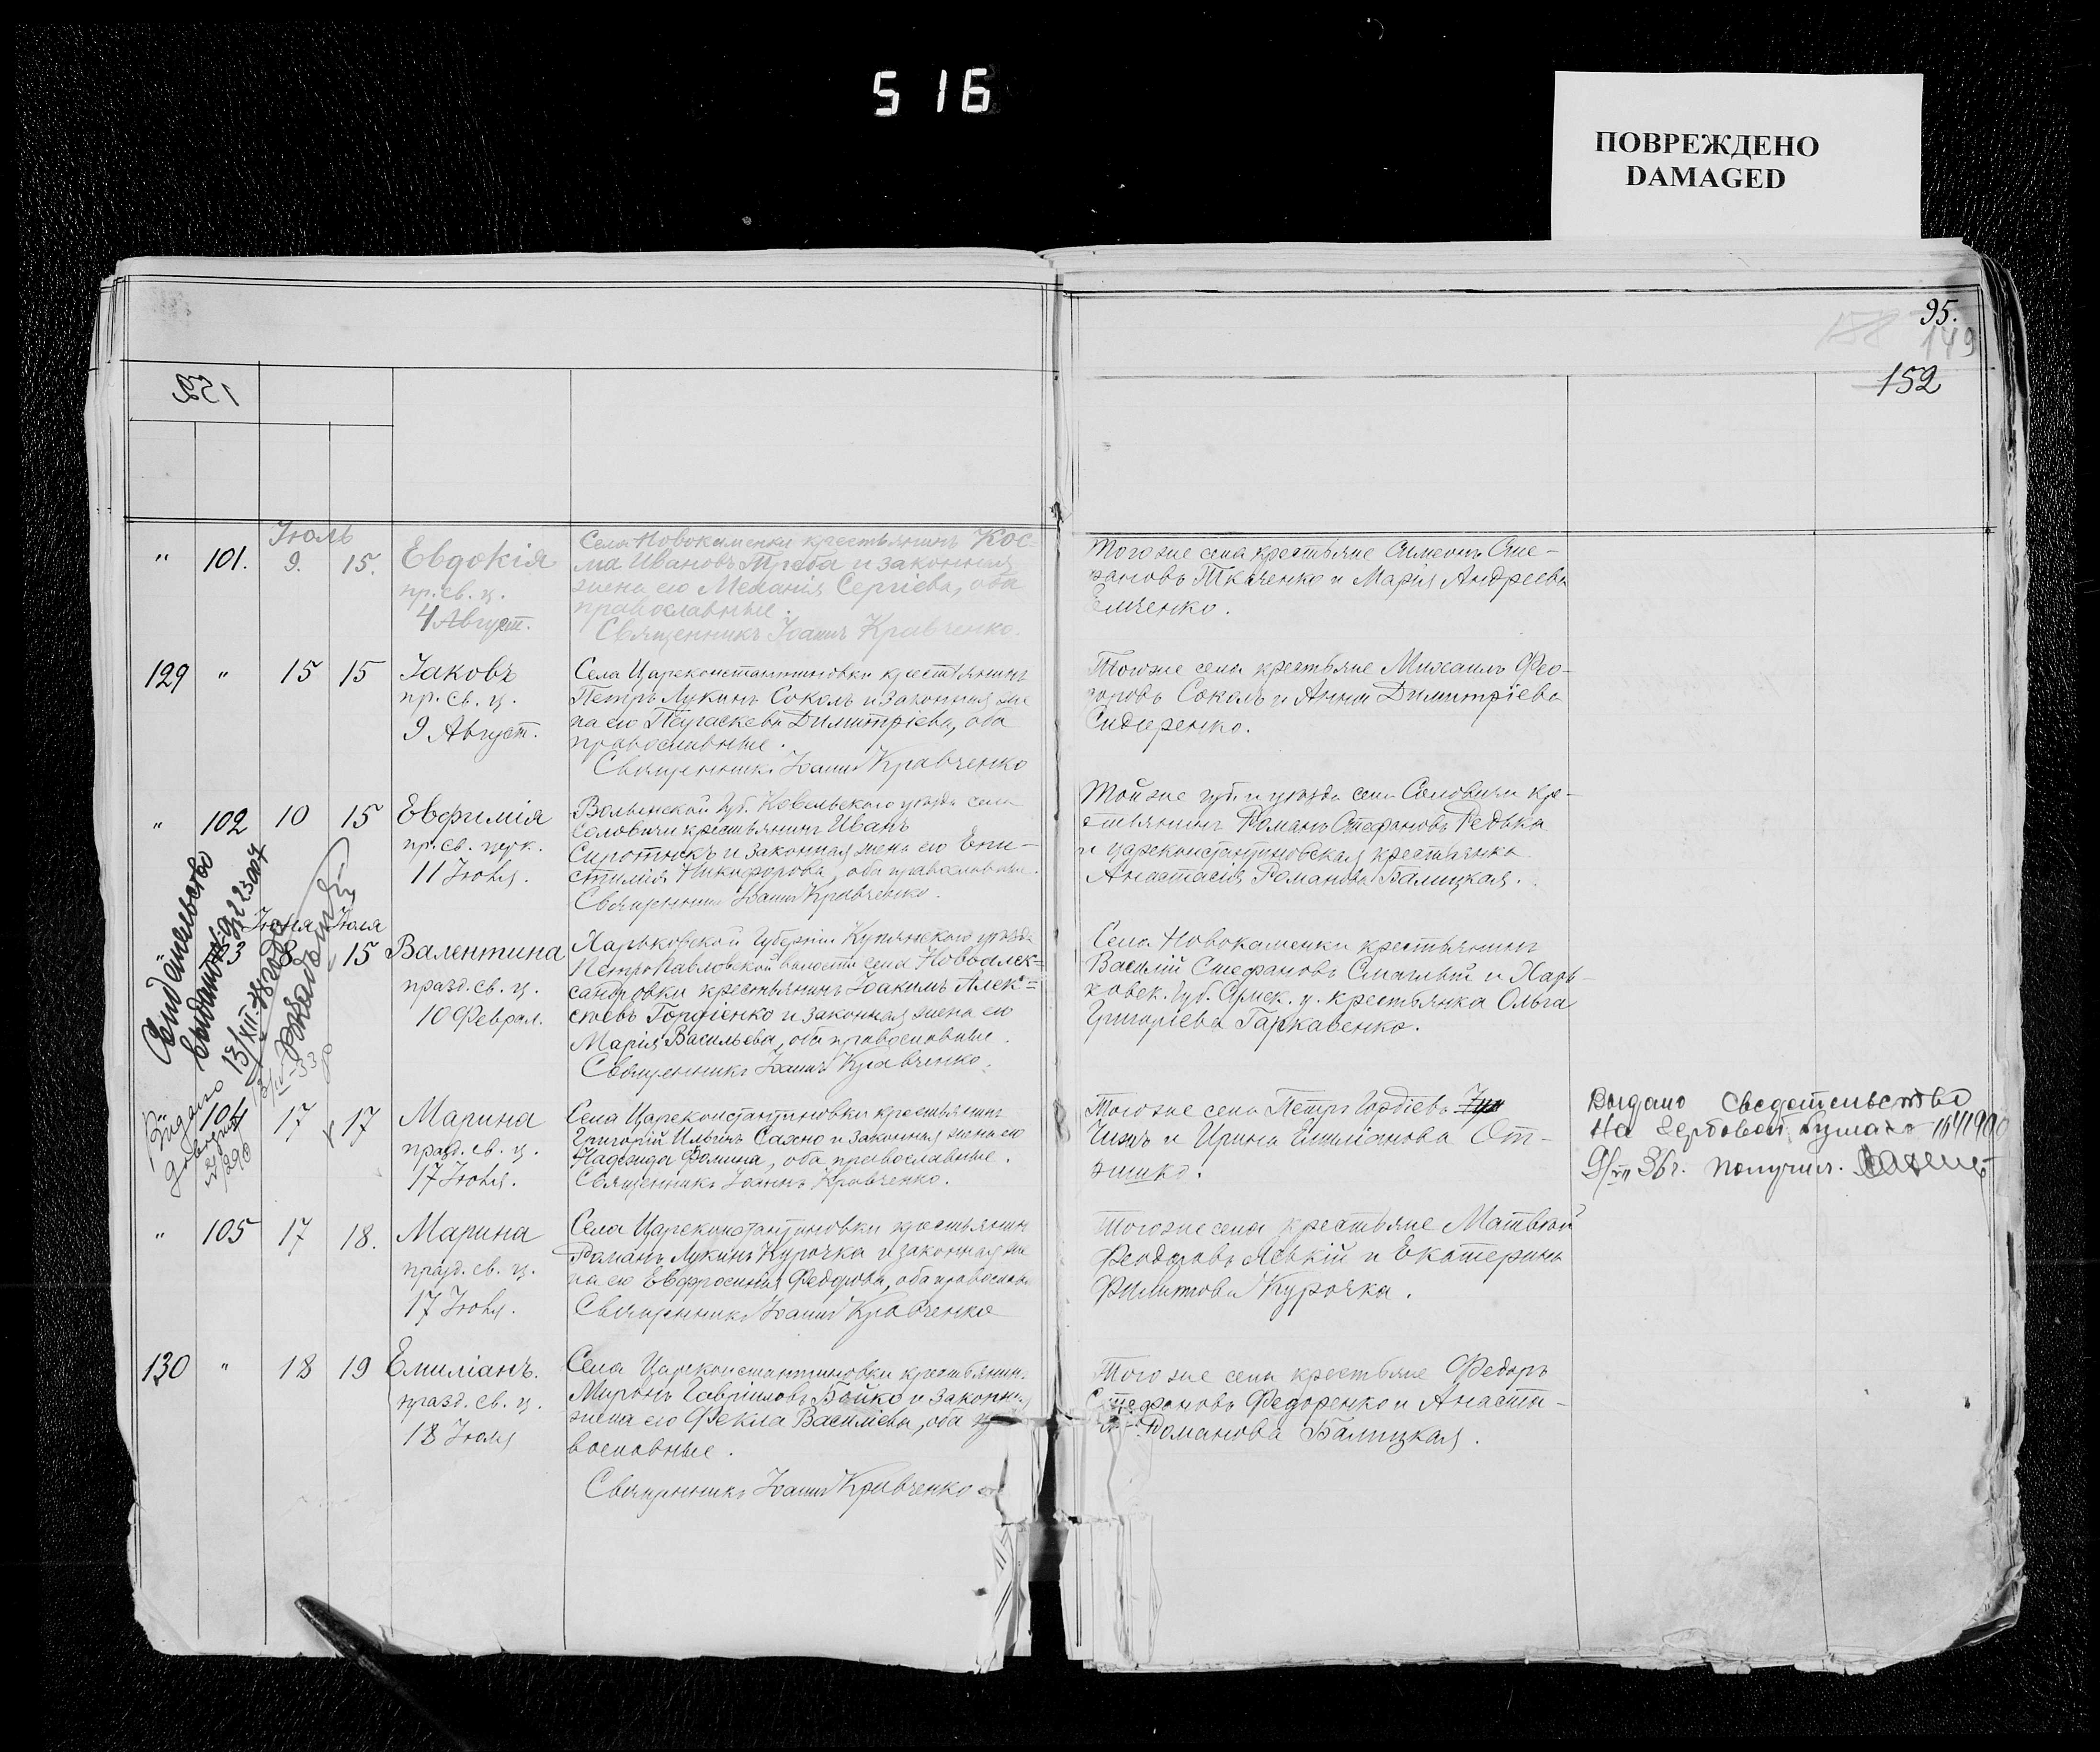 516
ПОВРЕЖДЕНО
DAMAGED
95.
149
152
Іюль
" 101. 9. 15. Евдокія
пр. св. ц.
4 Август.
Села Новокаменки крестьянинъ Кос-
ма Ивановъ Треба и законная
жена его Меланія Сергіева, оба
православные.
Священникъ Іоаннъ Кравченко.
Того же села крестьяне Симеонъ Сте-
фановъ Ткаченко и Марія Андреева
Емченко.
129 " 15 15 Іаковъ
пр. св. ц.
9 Август.
Села Цареконстантиновки крестьянинъ
Петръ Лукинъ Соколъ и законная же
на его Параскева Димитріева, оба
православные.
Священникъ Іоаннъ Кравченко
Того же села крестьяне Михаилъ Фео-
доровъ Соколъ и Анна Димитріева
Сидоренко.
" 102 10 15 Евфимія
пр. св. церк.
11 Іюля.
Волынской Губ. Ковельского уезда села
Соловичи крестьянинъ Иванъ
Сиротюкъ и законная жена его Епи-
стимія Никифорова, оба православные.
Священникъ Іоаннъ Кравченко.
Той же губ. и уезда села Соловичи кре-
стьянинъ Романъ Стефановъ Редька
и цареконстантиновская крестьянка
Анастасія Романова Балицкая.
Свидетельство
выдано
Іюня Іюля
" 15 Валентина
празд. св. ц.
10 Феврал.
Харьковской Губерніи Купянского уезда
Петропавловской волости села Новоалек-
сандровки крестьянинъ Іоакимъ Алек-
сіевъ Гордіенко и законная жена его
Марія Васильева, оба православные.
Священникъ Іоаннъ Кравченко.
Села Новокаменки крестьянинъ
Василій Стефановъ Смаглый и Харь-
ковск. Губ. у. крестьянка Ольга
Григоріева Гаркавенко.
" 104 17 17 Марина
празд. св. ц.
17 Іюля.
Села Цареконстантиновки крестьянинъ
Григорій Ильинъ Сахно и законная жена его
Надежда Фомина, оба православные.
Священникъ Іоаннъ Кравченко.
Того же села Петръ Гордіевъ
Чижъ и Ирина Емиліанова От-
Выдано Сведетельство
на Гербовой бумаге
36 г. получил.
" 105 17 18. Марина
празд. св. ц.
17 Іюля.
Села Цареконстантиновки крестьянин
Романъ Лукинъ Курочка и законная же
на его Евфросинія Федорова, оба православн
Священникъ Іоаннъ Кравченко
Того же села крестьяне Матвей
Феодоровъ и Екатерина
Филиппова Курочка.
130 " 18 19 Емиліанъ.
празд. св. ц.
18 Іюля
Села Цареконстантиновки крестьянин.
Миронъ Гавріиловъ Бойко и законная
жена его Фекла Василіева, оба пра
вославные.
Священникъ Іоаннъ Кравченко
Того же села крестьяне Федоръ
Стефановъ Федоренко и Анаст-
Романова Балицкая.